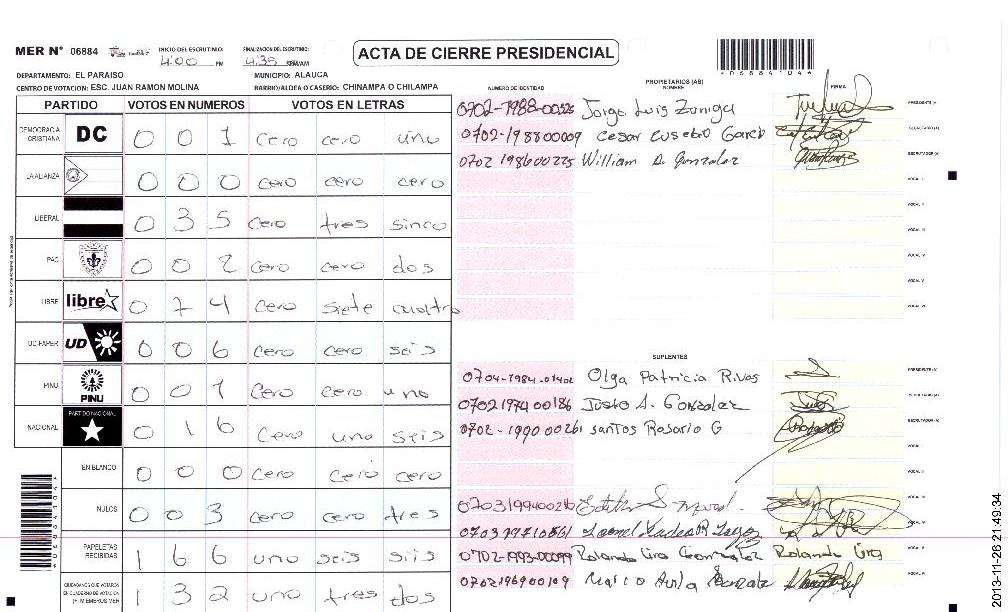 MER N° 06884
INICIO DEL ESCRUTINIO: 4:00 PM
FINALIZACION DEL ESCRUTINIO: 4:35
ACTA DE CIERRE PRESIDENCIAL
DEPARTAMENTO: EL PARAISO
MUNICIPIO: ALAUCA
CENTRO DE VOTACION: ESC. JUAN RAMON MOLINA
BARRIO/ALDEA O CASERIO: CHINAMPA O CHILAMPA
PARTIDO VOTOS EN NUMEROS VOTOS EN LETRAS
DEMOCRACIA CRISTIANA DC 0 0 1 cero cero uno
LA ALIANZA 0 0 0 cero cero cero
LIBERAL 0 3 5 cero tres sinco
PAC 0 0 2 cero cero dos
LIBRE libre 0 7 4 cero siete cuatro
UD-FAPER UD 0 0 6 cero cero seis
PINU PINU 0 0 1 cero cero uno
NACIONAL PARTIDO NACIONAL 0 1 6 cero uno seis
EN BLANCO 0 0 0 cero cero cero
NULOS 0 0 3 cero cero tres
PAPELETAS RECIBIDAS 1 6 6 uno seis seis
CIUDADANOS QUE VOTARON EN CUADERNO DE VOTACION 1 3 2 uno tres dos
PROPIETARIOS (AS)
NUMERO DE IDENTIDAD NOMBRE FIRMA
Jorge Luis Zuniga PRESIDENTE (A)
0702-198800009 Cesar Eusebio SECRETARIO (A)
0702 198600225 William D. Gonzalez ESCRUTADOR (A)
VOCAL I
VOCAL II
VOCAL III
VOCAL IV
VOCAL V
VOCAL VI
SUPLENTES
0704-1984-01402 Olga Patricia Rivas PRESIDENTE (A)
0702 1974 00186 Justo A. Gonzalez SECRETARIO (A)
0702-1990 00261 Santos Rosario G ESCRUTADOR (A)
VOCAL I
VOCAL II
VOCAL III
VOCAL IV
0702-1993-00099 Rolando Gonzalez Rolando VOCAL V
0702196900109 Marco Avila VOCAL VI
2013-11-26 21:49:34